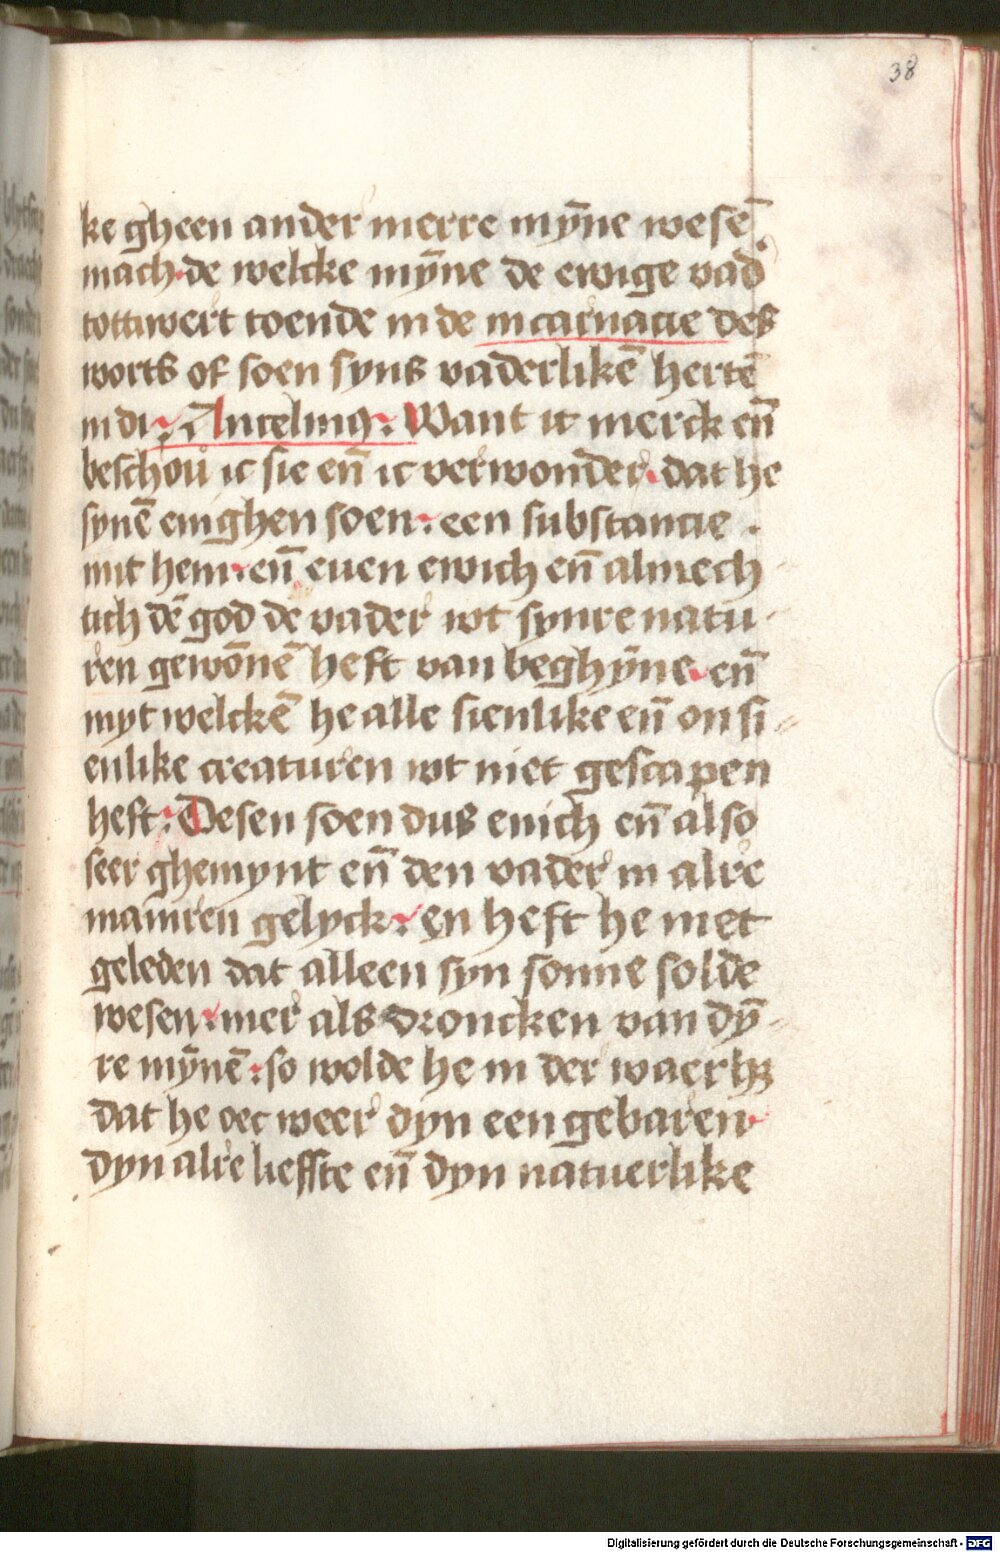 38
ke gheen ander merre mȳne wesē
mach. de welcke mȳne de ewige vad
tottiwert toende in de incarnacie des
worts of soen syns vaderlikē hertē
in di. Ancelmꝰ. Want ic merck en̄
beschou ic sie en̄ ic verwonder. dat he
synē eínghen soen. een substancie.
mit hem. en̄ euen ewich en̄ almech
tich dē god de vader wt synre natu
ren gewōnē heft van beghȳne. en̄
myt welckē he alle sienlike en̄ onsi-
enlike creaturen wt niet gescapen
heft. Desen soen dus enich en̄ also
seer ghemynt en̄ den vader in alre
maniren gelyck. en heft he niet
geleden dat alleen syn sonne solde
wesen. mer als droncken van dȳ-
re mȳnē. so wolde he in der waerhz
dat he oec weer dyn eengebaren
dyn alre liefste en̄ dyn natuerlike
Digitalisierung gefördert durch die Deutsche Forschungsgemeinschaft - DFG